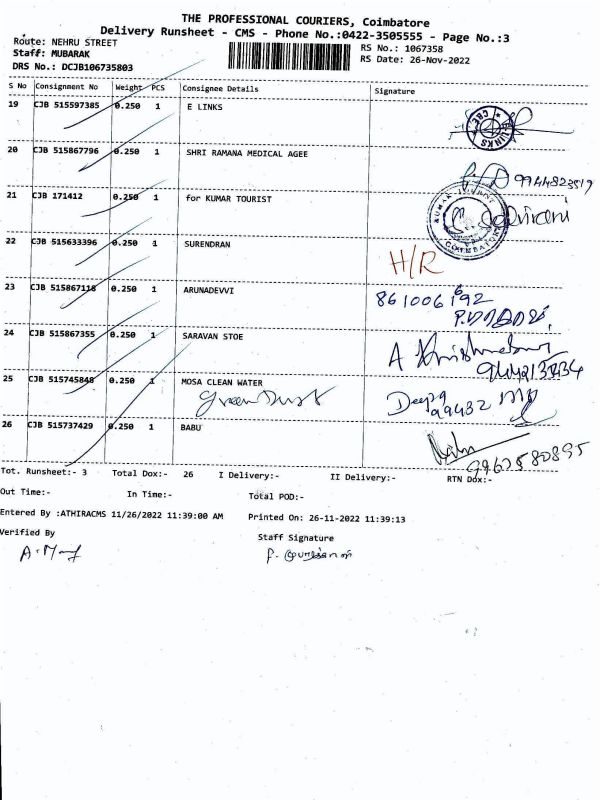 THE PROFESSIONAL COURIERS, Coimbatore
Delivery Runsheet - CMS - Phone No.:0422-3505555 - Page No.:3
Route: NEHRU STREET
RS No.: 1067358
Staff: MUBARAK
RS Date: 26-Nov-2022
DRS No.: DCJB106735803
S No Consignment No Weight PCS Consignee Details Signature
19 CJB 515597385 0.250 1 E LINKS
20 CJB 515867796 0.250 1 SHRI RAMANA MEDICAL AGEE
9944823519
21 CJB 171412 0.250 1 for KUMAR TOURIST
COIMBATORE
22 CJB 515633396 0.250 1 SURENDRAN
H/R
23 CJB 515867118 0.250 1 ARUNADEVVI
24 CJB 515867355 0.250 1 SARAVAN STOE
25 CJB 515745848 0.250 1 MOSA CLEAN WATER
Green Dust
Deepa
99432
26 CJB 515737429 0.250 1 BABU
Tot. Runsheet:- 3 Total Dox:- 26 I Delivery:- II Delivery:- RTN Dox:-
Out Time:- In Time:- Total POD:-
Entered By :ATHIRACMS 11/26/2022 11:39:00 AM Printed On: 26-11-2022 11:39:13
Verified By Staff Signature